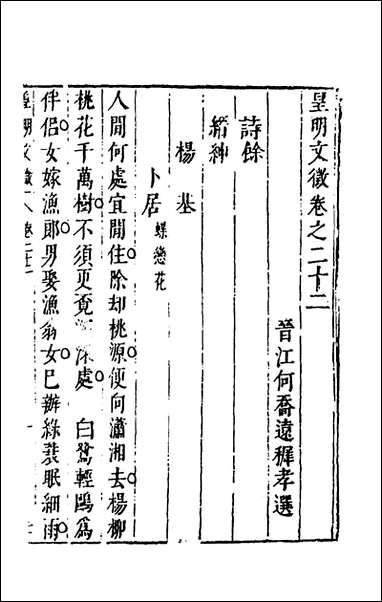 皇明文徵卷之二十二
晉江何喬遠穉孝選
詩餘
縉紳
楊基
卜居 蝶戀花
人間何處宜閒住除却桃源便向瀟湘去楊柳
桃花千萬樹不須更覓深處 白鷺輕鷗爲
伴侶女嫁漁郎男娶漁翁女巳辦綠蓑眠細雨
皇明文徵 卷二十二